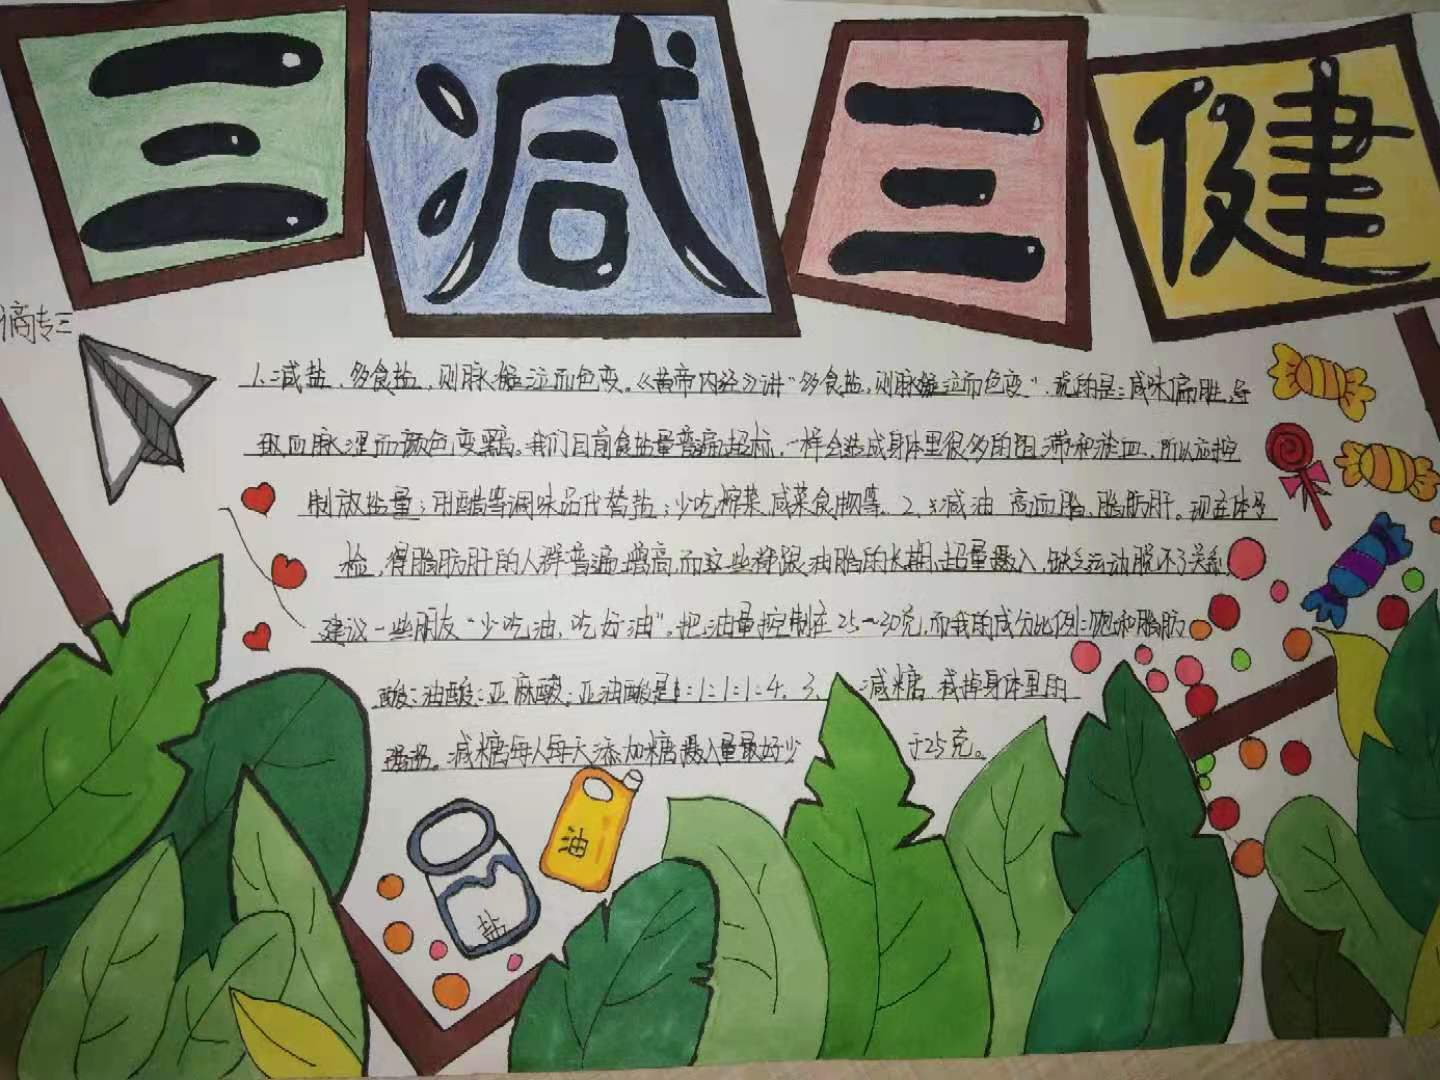 三减三健
高专三
1、减盐，多食盐，则脉凝泣而色变。《黄帝内经》讲"多食盐，则脉凝泣而色变"，说的是：咸味偏胜，导
致血脉涩而颜色变黑。我们目前食盐量普遍超标，一样会造成身体里很多的阻滞和淤血，所以应控
制放盐量；用醋等调味品代替盐；少吃榨菜、咸菜食物等。2、减油 高血脂、脂肪肝。现在体
检，得脂肪肝的人群普遍增高，而这些都跟油脂的长期、超量摄入，缺乏运动脱不了关系，
建议一些朋友"少吃油，吃好油"。把油量控制在25~30克，而我的成分比例：饱和脂肪
酸：油酸：亚麻酸：亚油酸是1：1：1：4。3、减糖 减掉身体里的
湿邪。减糖每人每天添加糖摄入量最好少于25克。
油
盐